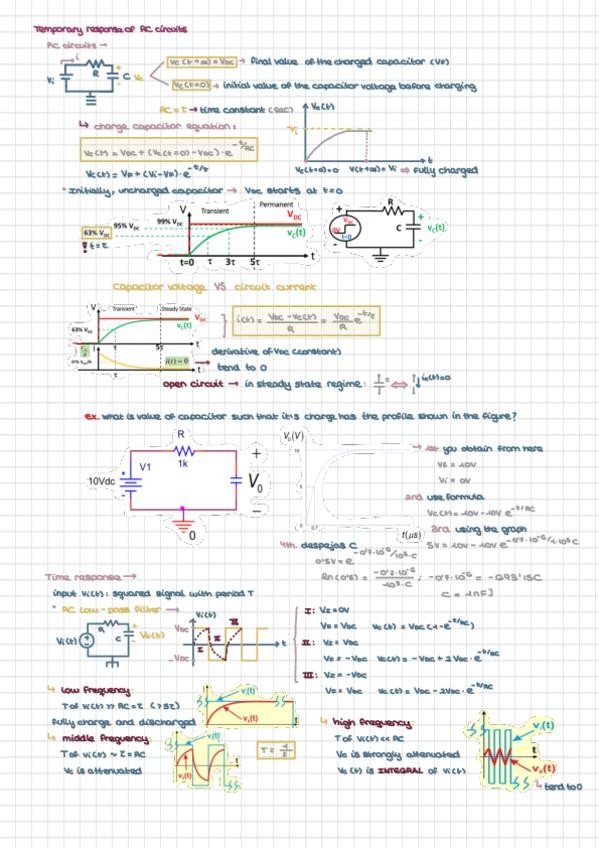 Temporary response of RC circuits
RC circuits →
i
R
C
Vc
Vi
Vc(t→∞) = VDC → final value of the charged capacitor (VF)
Vc(t=0) → initial value of the capacitor voltage before charging
RC = τ → time constant (sec)
Vc(t)
↳ charge capacitor equation:
Vc(t) = VDC + (Vc(t=0) - VDC) · e^-t/RC
Vc(t) = VF + (Vi - VF) · e^-t/τ
t
Vc(t=0)=0 V(t→∞) = Vi ⇒ fully charged
* Initially, uncharged capacitor → VDC starts at t=0
V Transient Permanent
95% VDC 99% VDC VDC
63% VDC vC(t)
t=τ
t=0 τ 3τ 5τ t
R
C
vC(t)
Capacitor voltage VS circuit current
V Transient Steady State
VDC
63% VDC vC(t)
τ 5τ t
i(t) = 0
τ t
i(t) = VDC - Vc(t) / R = VDC / R · e^-t/τ
derivative of VDC (constant)
tend to 0
open circuit → in steady state regime: C ⇔ ic(t)=0
ex. what is value of capacitor such that it's charge has the profile shown in the figure?
R
1k
10Vdc
V1
+
V0
-
0
V0(V)
10
5
0.7
t(μs)
→ 1st you obtain from here
Vi = 0V
2nd use formula
Vc(t) = 10V - 10V e^-t/RC
3rd using the graph
5V = 10V - 10V e^-0'7·10^-6/10^3·C
4th. despejas C
0'5V = e^-0'7·10^-6/10^3·C
ln(0'5) = -0'7·10^-6 / 10^3·C ; -0'7·10^-6 = -0'693·10^3C
C = 1nF
Time response →
input Vi(t): squared signal with period T
* RC low-pass filter →
R
C
Vi(t)
Vo(t)
Vi(t)
VDC
-VDC
I
II
III
t
I: Vi = 0V
Vo = VDC Vc(t) = VDC (1-e^-t/RC)
II: Vi = VDC
Vo = -VDC Vc(t) = -VDC + 2VDC · e^-t/RC
III: Vi = -VDC
Vo = VDC Vc(t) = VDC - 2VDC · e^-t/RC
↳ low frequency:
T of Vi(t) >> RC = τ (>5τ)
fully charge and discharged
vi(t)
vo(t)
t
↳ middle frequency:
T of Vi(t) ~ τ = RC
Vc is attenuated
vi(t)
vo(t)
t
T = 1/f
↳ high frequency:
T of Vi(t) << RC
Vc is strongly attenuated
Vc(t) is INTEGRAL of Vi(t)
vi(t)
t
vo(t)
↳ tend to 0